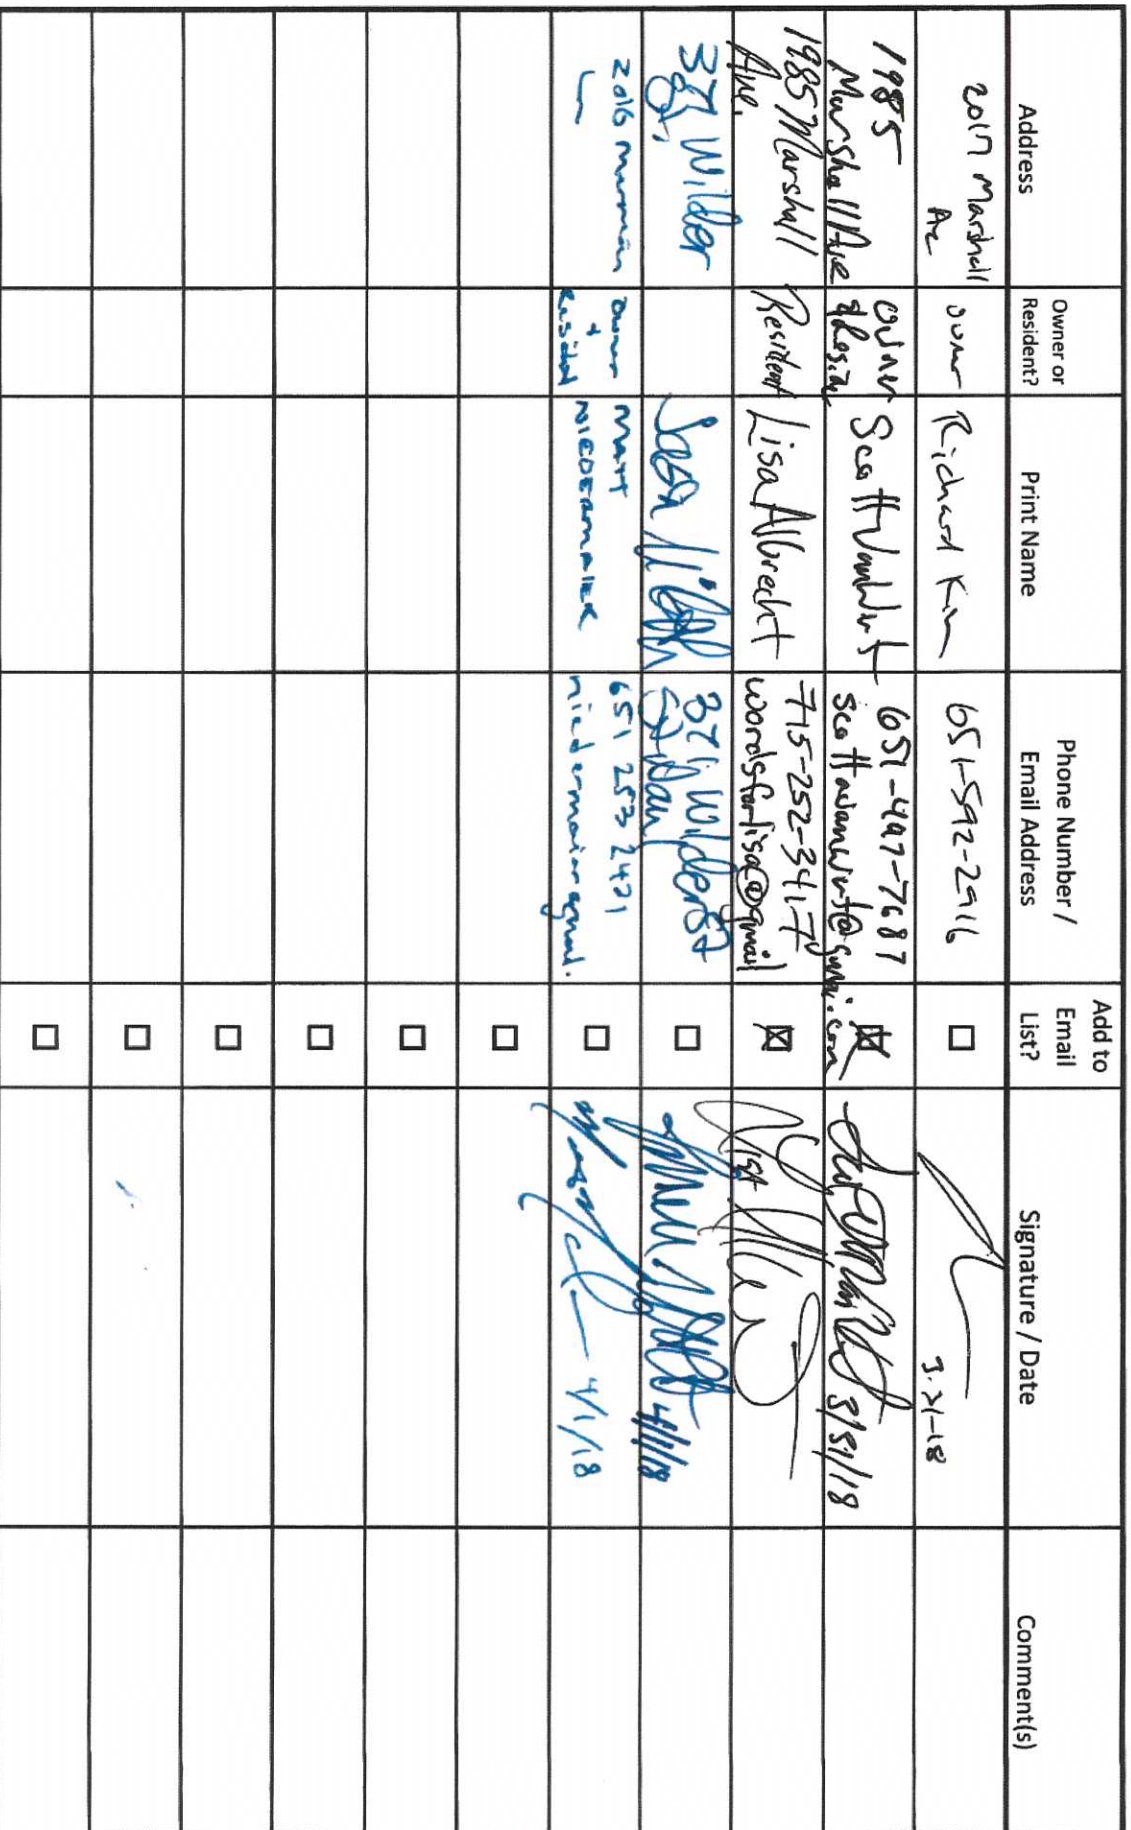 Address
Owner or
Resident?
Print Name
Phone Number /
Email Address
Add to
Email
List?
Signature / Date
Comment(s)
2017 Marshall
Ave
owner
Richard Kim
651-592-2916
3-21-18
1985
Marshall Ave
owner
& Resident
Scott VanWirt
651-497-7687
3/31/18
1985 Marshall
Ave.
Resident
Lisa Albrecht
715-252-3417
wordsforlisa@gmail
Wilder
St,
4/1/18
2016
Ln
Owner
+
Resident
MATT
NIEDERMAIER
651 253 2421
4/1/18